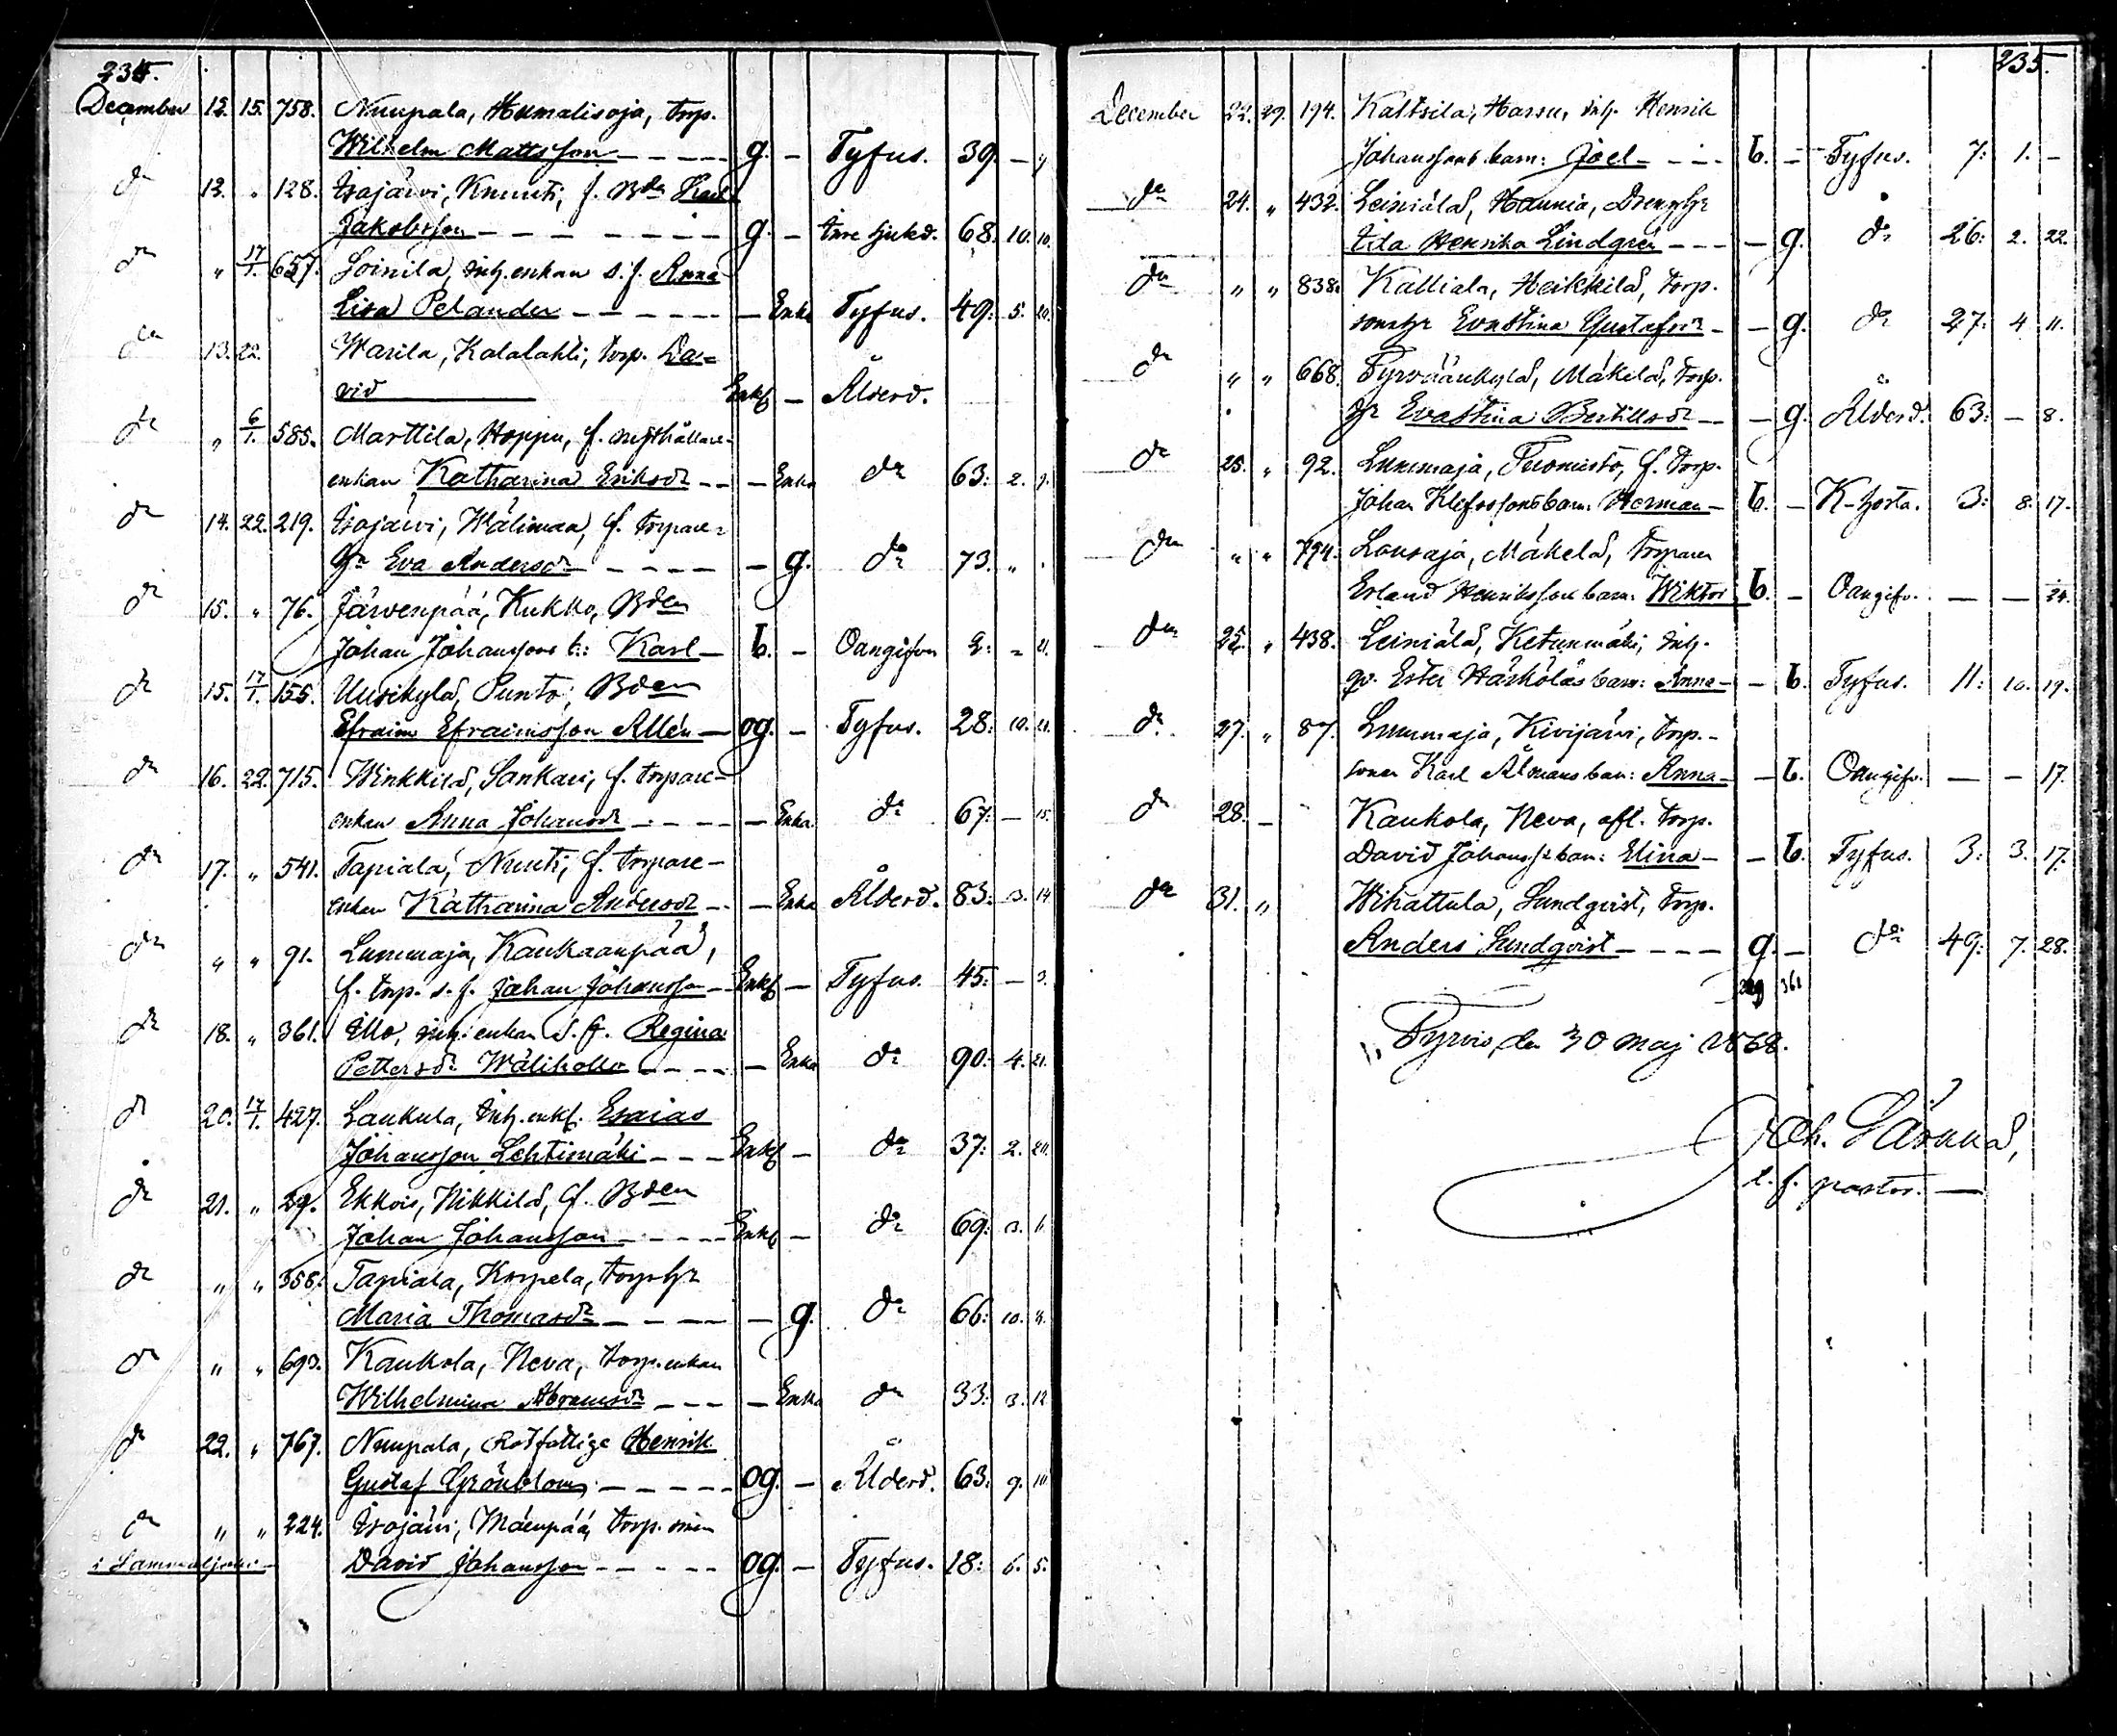 234.
December 12. 15. 758. Nuupala, Humalisoja, torp.
Wilhelm Mattsson g. — Tyfus. 39. —
do 12. " 128. Isojärvi, Knuuti, f. Bdn
Jakobsson g. — 68. 10. 10.
do " 17/1. 657. Soinila, inh. enkan s. f. Anna
Lisa Pelander — Enka Tyfus. 49. 5. 20.
do 13. 22. Warila, Kalalahti, torp. Da-
vid Enkl — Ålderd.
do " 6/1. 585. Marttila, Hoppu, f.
enkan Katharina Eriksdr — Enka do 63. 2. 9.
do 14. 22. 219. Isojärvi, Wälimaa, f. torpare-
hr Eva Andersdr — g. do 73. "
do 15. " 76. Järvenpää, Kukko, Bden
Johan Johanssons b.: Karl b. — Oangifven 2. - 21.
do 15. 17/1. 155. Uusikylä, Punto, Bden
Efraim Efraimsson Allén og. — Tyfus. 28. 10. 21.
do 16. 22. 715. Winkkilä, Sankari, f. torpare-
enkan Anna Johansdr — Enka. do 67: — 15.
do 17. " 541. Tapiala, Nuuti, f. torpare-
enkan Katharina Andersdr — Enka Ålderd. 83: 3. 14
do " " 91. Lummaja, Kaukaanpää,
f. torp. s. f. Johan Johansson Enkl — Tyfus. 45: — 3.
do 18. " 361. Illo, inh. enkan s. f. Regina
Pettersdr Wälihollo — Enka do 90: 4. 21.
do 20. 17/1. 427. Laukula, Inh. enkl. Esaias
Johansson Lehtimäki Enkl — do 37: 2. 20.
do 21. " 29. Ekkois, Nikkilä, f. Bden
Johan Johansson Enkl — do 69: 3. 1.
do " " 358. Tapiala, Korpela, torp.hr
Maria Thomasdr — g. do 66: 10. 8.
do " " 693. Kaukola, Neva, torp.enkan
Wilhelmina Abramsdr — Enka do 33: 3. 12
do 22. " 767. Nuupala, Rotfattige Henrik
Gustaf Grönblom og. — Ålderd. 63: 9. 10
do " " 224. Isojärvi, Mäenpää, torp. son
i Sammaljoki David Johansson og. — Tyfus. 18: 6. 5.
235.
December 22. 29. 194. Kaltsila, Hassu, inh. Henrik
Johanssons barn: Joel b. — Tyfus. 7: 1. —
do 24. " 432. Leiniälä, Haunia, Drenghr
Ida Henrika Lindgren — g. do 26: 2. 22.
do " " 838. Kalliala, Heikkilä, torp.
sonshr Evastina Gustafsdr — g. do 27: 4 11.
do " " 668. Tyrväänkylä, Mäkelä, torp.
hr Evastina Bertillsdr — g. Ålderd. 63: — 8.
do 25. " 92. Lummaja, Tuomisto, f. torp.
Johan Klefossons barn: Herman b. — K-hosta. 3: 8. 17.
do " " 794. Lousaja, Mäkelä, torparen
Erland Henrikssons barn: Wiktor b. — Oangifv. — — 24.
do 25. " 438. Leiniälä, Ketunmäki, inh.
qv. Ester Härkäläs barn: Anna — b. Tyfus. 11: 10. 19.
do 27. " 87. Lummaja, Kivijärvi, torp.-
sonen Karl Ålmans barn: Anna — b. Oangifv. — — 17.
do 28. — Kaukola, Neva, afl. torp.
David Johanss. barn: Elina — b. Tyfus. 3: 3. 17.
do 31. " Wihattula, Lundqvist, torp.
Anders Lundqvist g. — do 49: 7. 28.
361
Tyrvis, den 30 maj 1868.
Joh. Särkkä,
t. f. pastor.